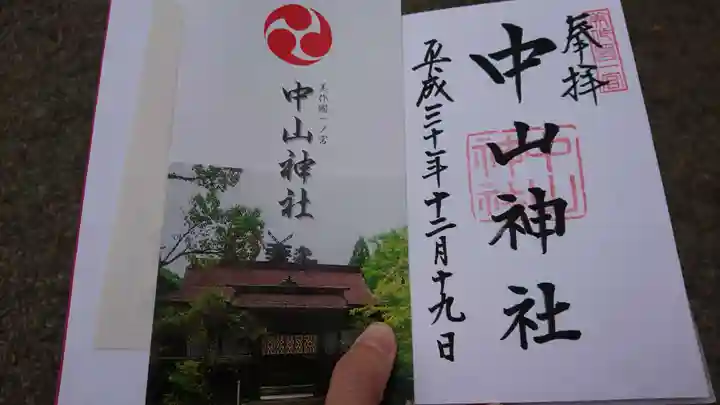 奉拝
中山神社
平成三十年十二月十九日
中山
神社
美作國一ノ宮
中山神社